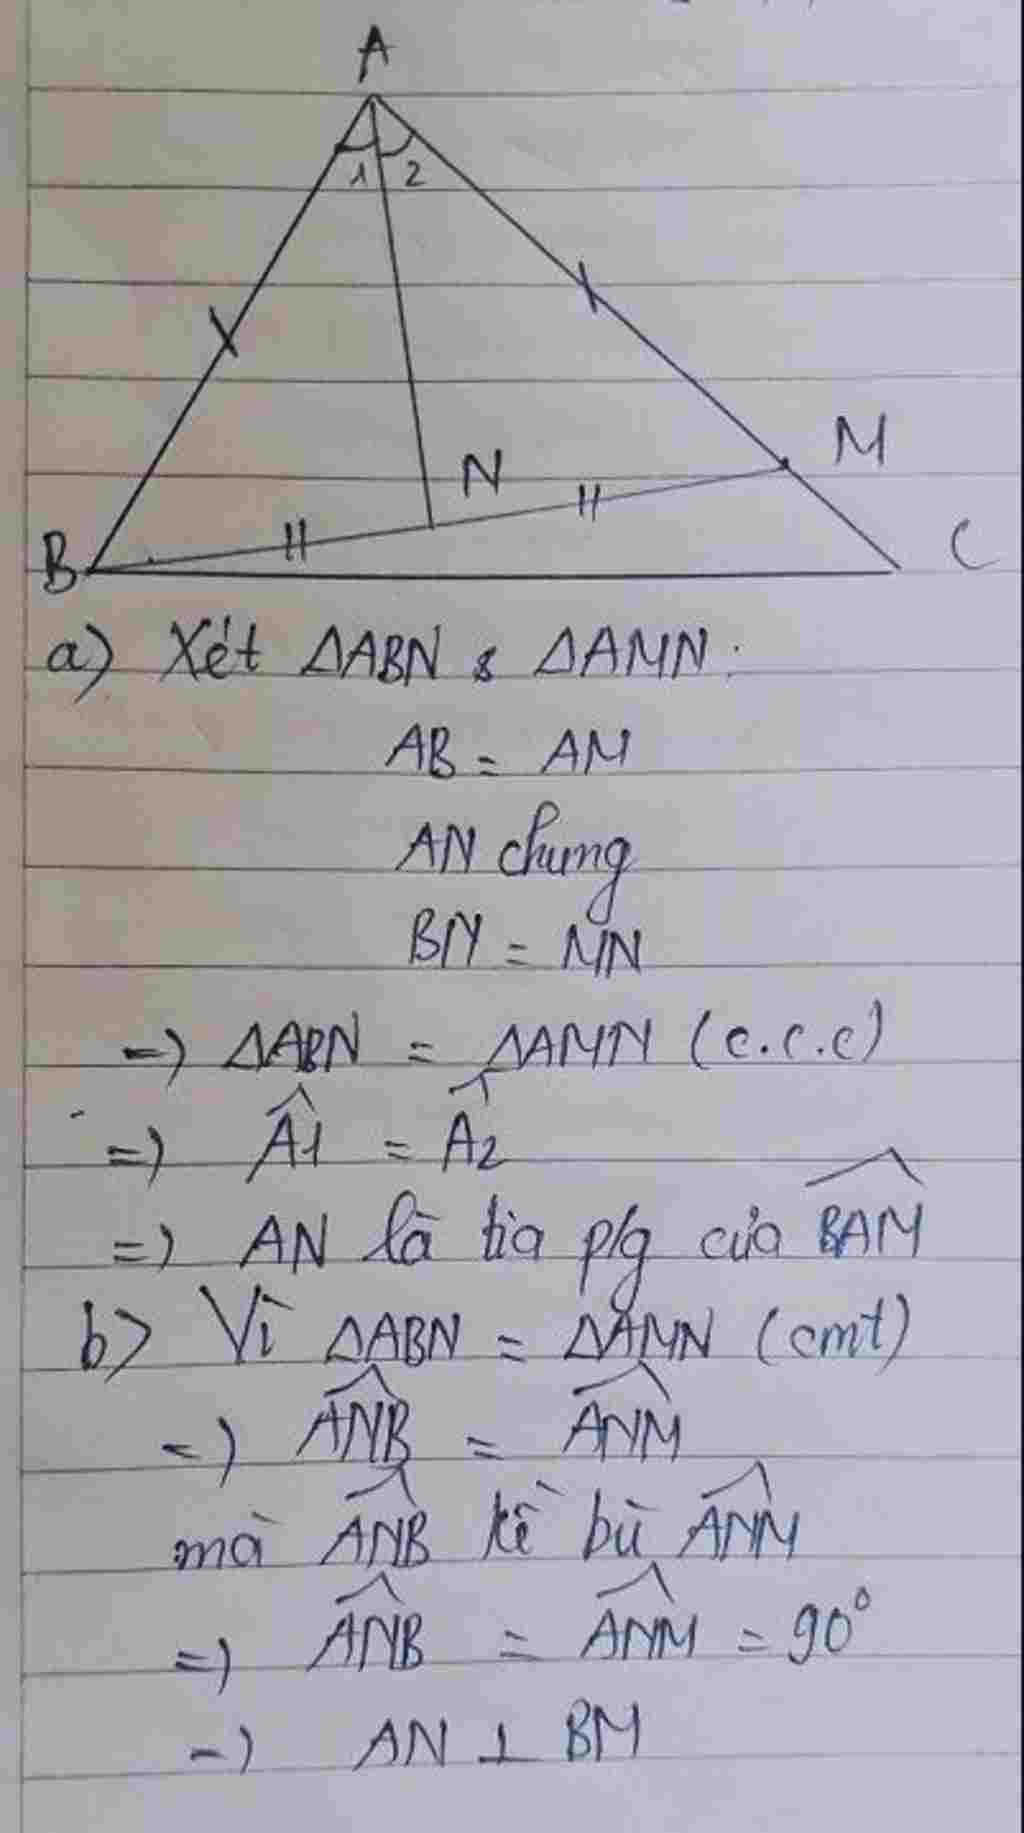 A
1 2
M
N
B
C
a) Xét ΔABN & ΔAMN:
AB = AM
AN chung
BN = MN
=) ΔABN = ΔAMN (c.c.c)
=) Â1 = Â2
=) AN là tia p/g của \widehat{BAM}
b) Vì ΔABN = ΔAMN (cmt)
=) \widehat{ANB} = \widehat{ANM}
mà \widehat{ANB} kề bù \widehat{ANM}
=) \widehat{ANB} = \widehat{ANM} = 90°
=) AN ⊥ BM